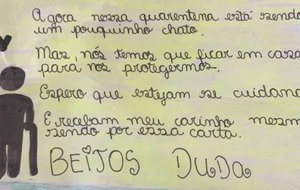 Agora nessa quarentena está sendo
um pouquinho chato.
Mas, nós temos que ficar em casa
para nos protegermos.
Espero que estejam se cuidando
E recebam meu carinho mesmo
sendo por essa carta.
BEIJOS DUDA